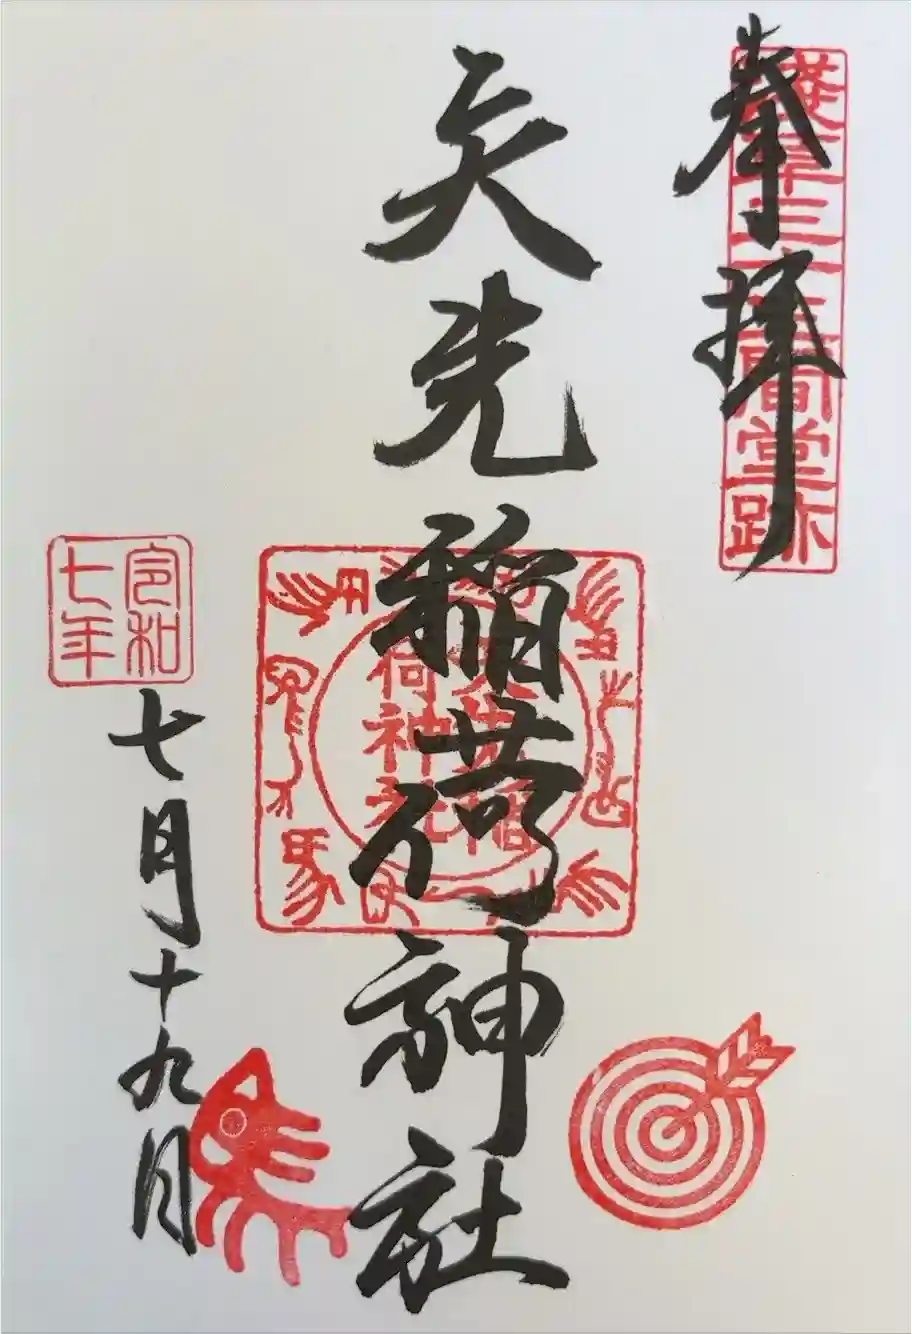 奉拝
浅草三十三間堂跡
矢先稲荷神社
矢先稲
荷神社
令和
七年
七月十九日
馬